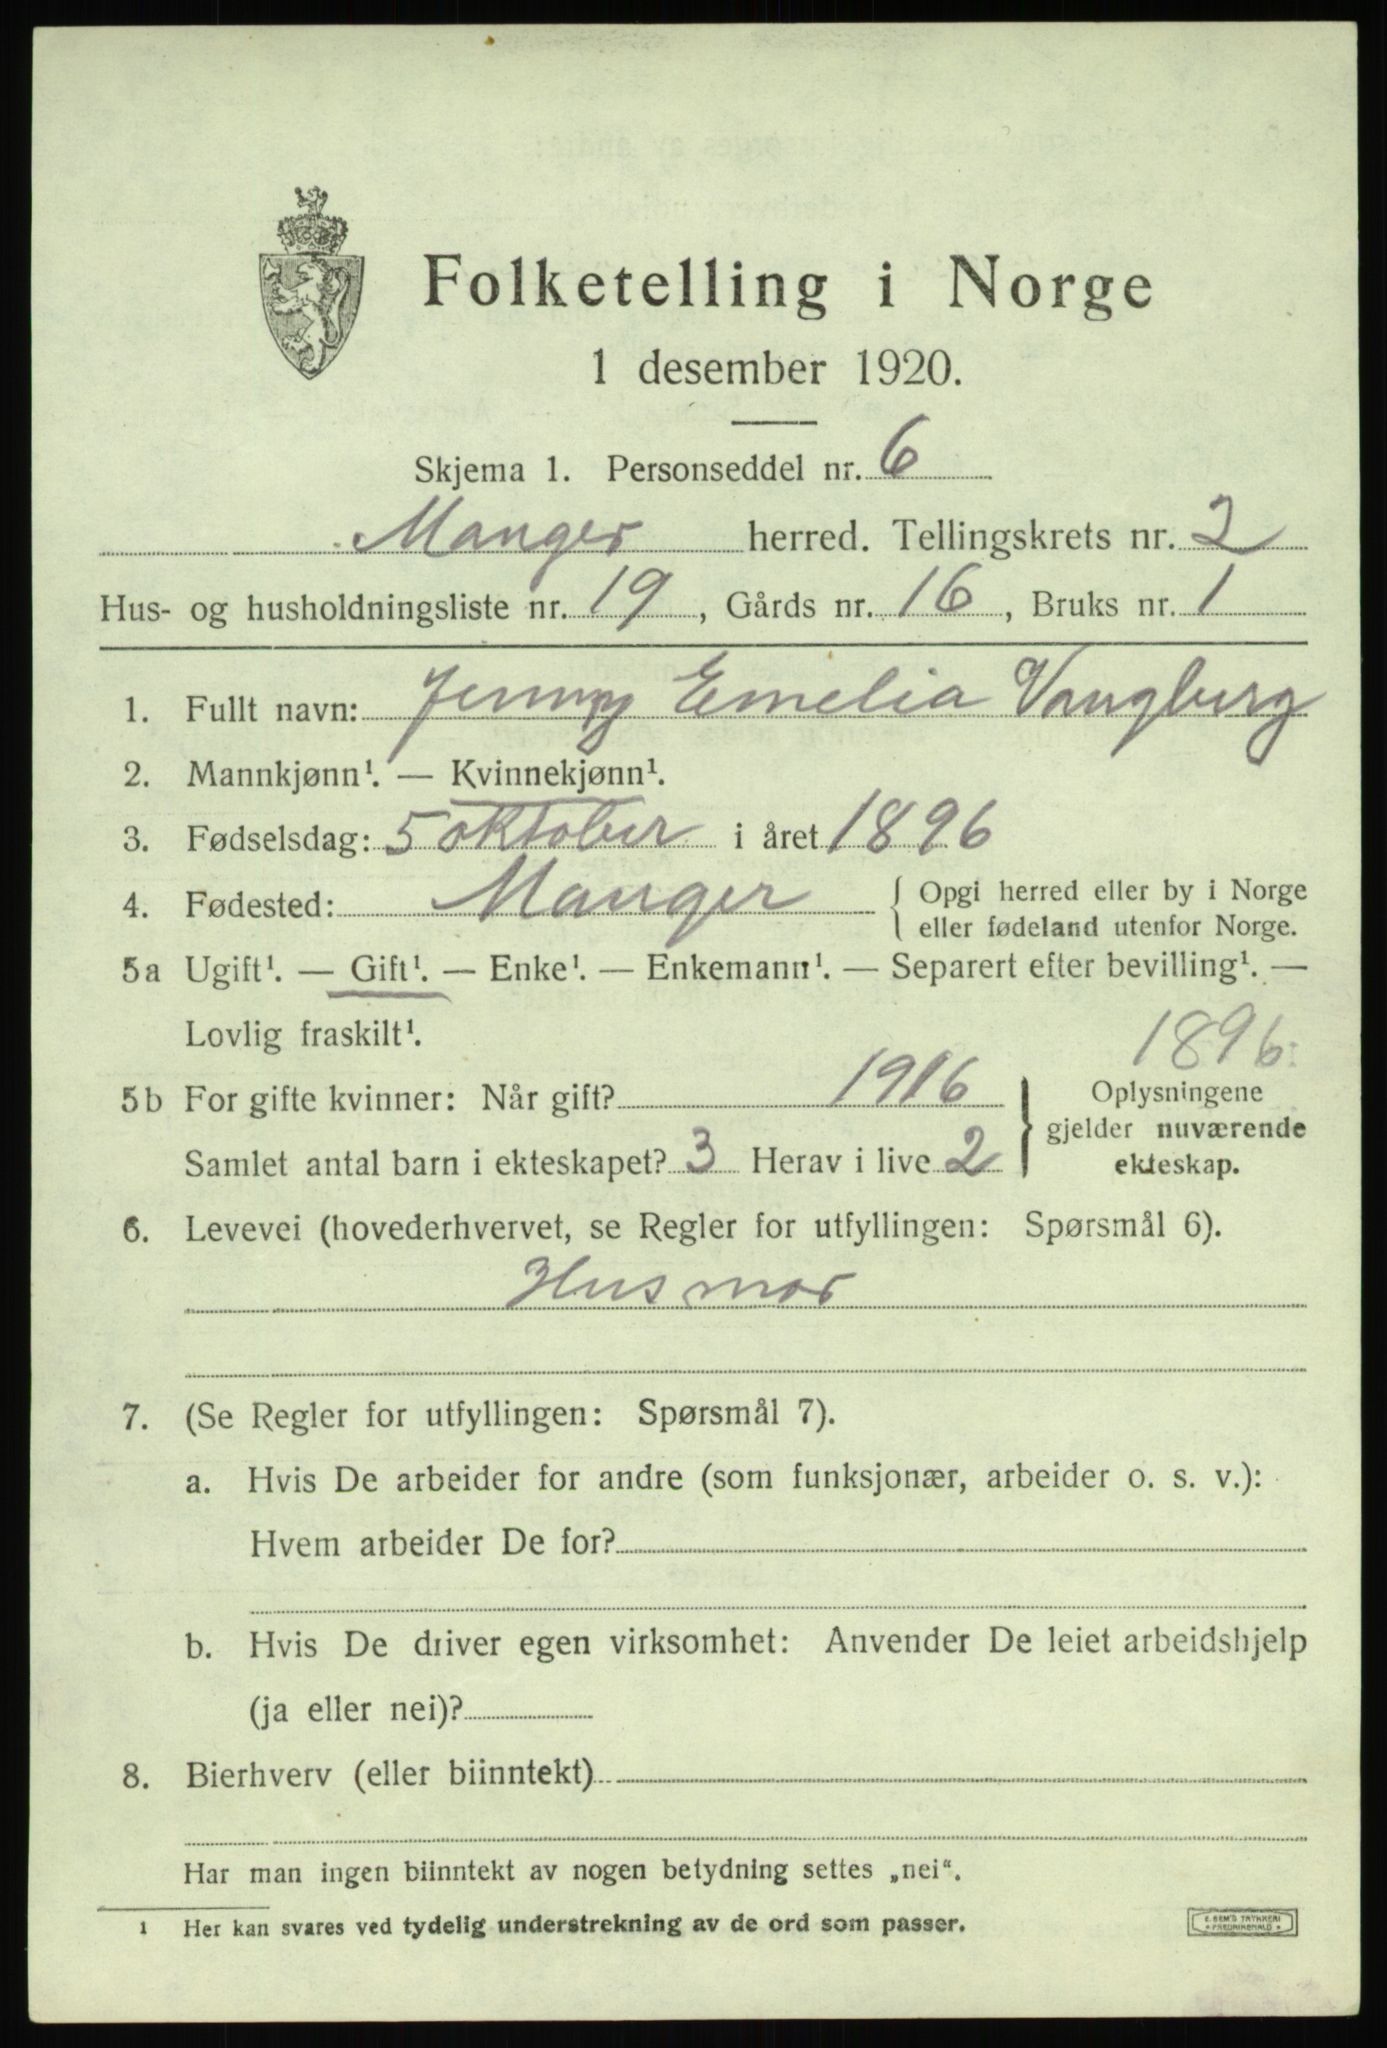 Folketelling i Norge
1 desember 1920.
Skjema 1. Personseddel nr. 6
Manger herred. Tellingskrets nr. 2
Hus- og husholdningsliste nr. 19, Gårds nr. 16, Bruks nr. 1
1. Fullt navn: Jenny Emelia Vangberg
2. Mannkjønn¹. — Kvinnekjønn¹.
3. Fødselsdag: 5 oktober i året 1896
4. Fødested: Manger { Opgi herred eller by i Norge
eller fødeland utenfor Norge.
5a Ugift¹. — Gift¹. — Enke¹. — Enkemann¹. — Separert efter bevilling¹. —
Lovlig fraskilt¹.
1896
5b For gifte kvinner: Når gift? 1916
Samlet antal barn i ekteskapet? 3 Herav i live 2
} Oplysningene
gjelder nuværende
ekteskap.
6. Levevei (hovederhvervet, se Regler for utfyllingen: Spørsmål 6).
Husmor
7. (Se Regler for utfyllingen: Spørsmål 7).
a. Hvis De arbeider for andre (som funksjonær, arbeider o. s. v.):
Hvem arbeider De for?
b. Hvis De driver egen virksomhet: Anvender De leiet arbeidshjelp
(ja eller nei)?
8. Bierhverv (eller biinntekt)
Har man ingen biinntekt av nogen betydning settes „nei“.
1 Her kan svares ved tydelig understrekning av de ord som passer.
E. SEM'S TRYKKERI
FREDRIKSHALD